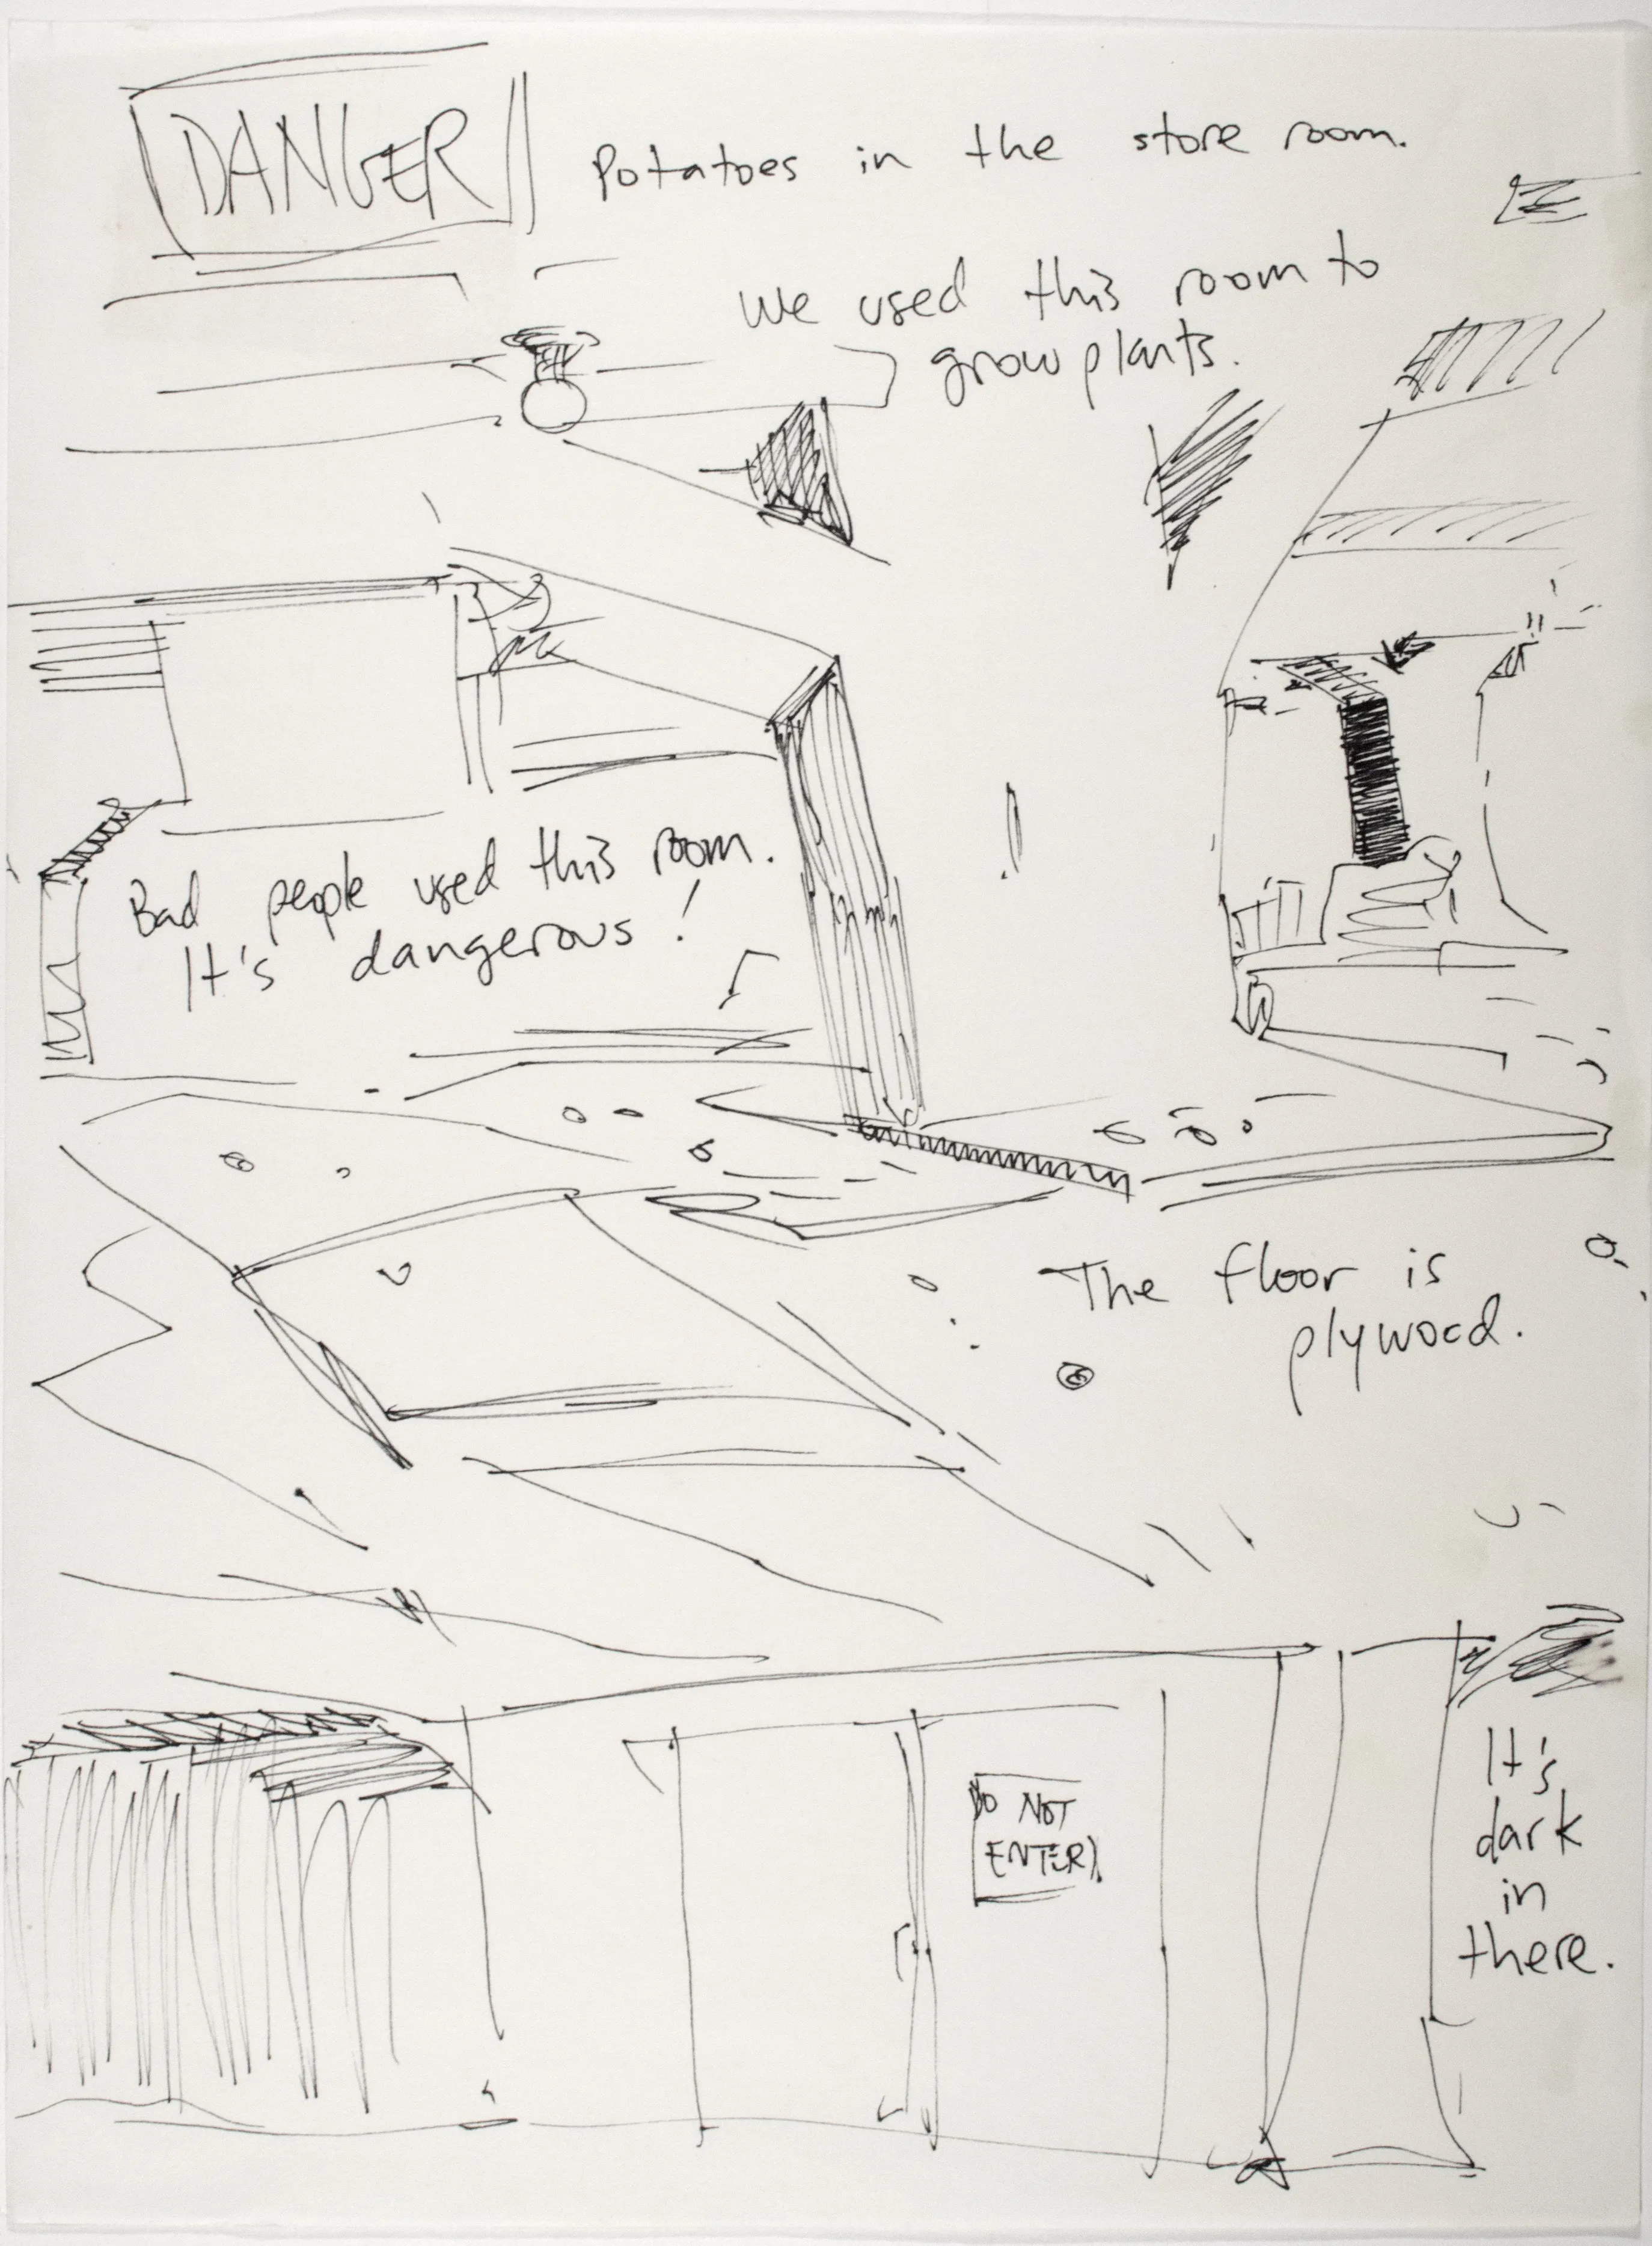 DANGER
Potatoes in the store room.
We used this room to
grow plants.
Bad people used this room.
It's dangerous!
The floor is
plywood.
DO NOT
ENTER
It's
dark
in
there.